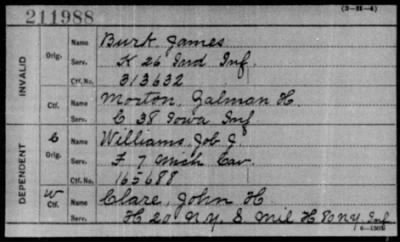 (3-11-4)
211988
INVALID
Orig.
Name Burk, James
Serv. K 26 Ind Inf.
Ctf. No. 313632
Ctf.
Name Morton, Galman H.
Serv. C 38 Iowa Inf
DEPENDENT
C
Orig.
Name Williams, Job J.
Serv. F. 7 Mich Cav.
Ctf. No. 165688
W
Ctf.
Name Clare, John H
Serv. H 20 N.Y. S Mil H 80 NY Inf